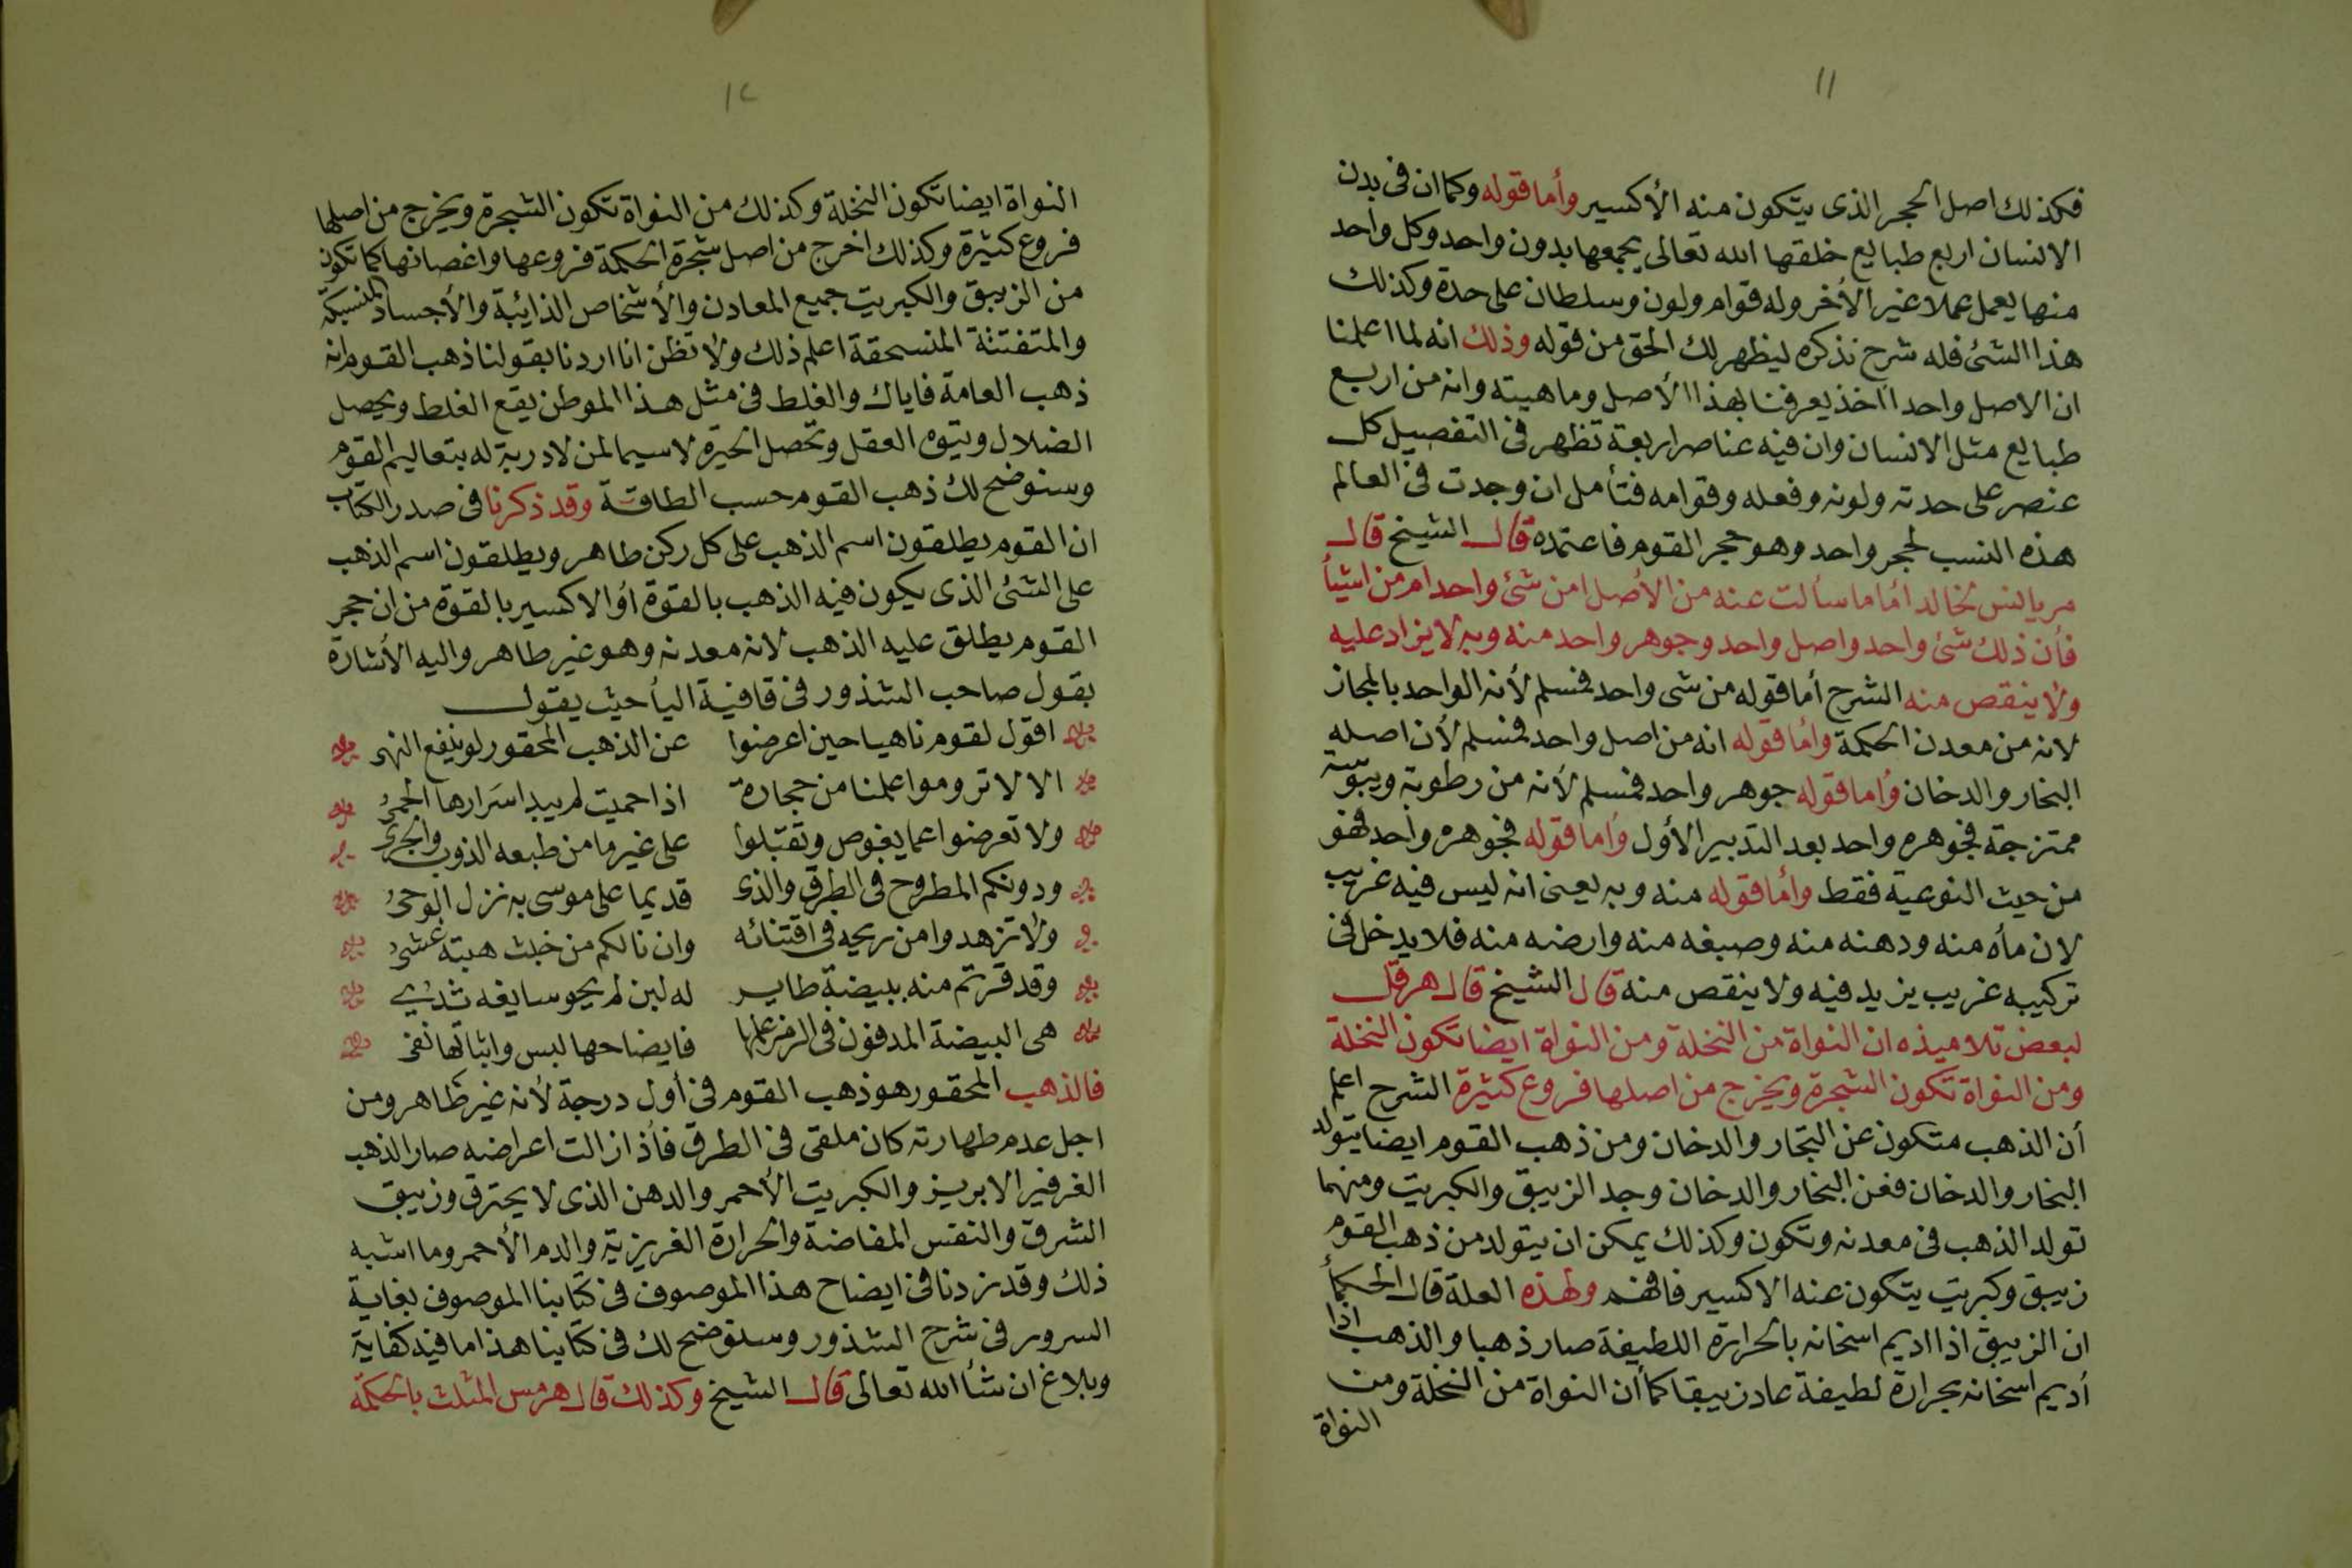 ١١
فكذلك اصل الحجر الذى يتكون منه الأكسير وأما قوله وكما ان فى بدن
الانسان اربع طبايع خلقها الله تعالى يجمعها بدون واحد وكل واحد
منها يعمل عملا غير الأخر وله قوام ولون وسلطان على حدة وكذلك
هذا الشئ فله شرح نذكره ليظهر لك الحق من قوله وذلك انه لما اعلمنا
ان الاصل واحد اأخذ يعرفنا بهذا الأصل وماهيته وانه من اربع
طبايع مثل الانسان وان فيه عناصر اربعة تظهر فى التفصيل كل
عنصر على حدته ولونه وفعله وقوامه فتأمل ان وجدت فى العالم
هذه النسب لحجر واحد وهو حجر القوم فاعتمده قال الشيخ قال
مريانس لخالد أما ما سألت عنه من الأصل امن شئ واحد ام من اشيأ
فأن ذلك شئ واحد واصل واحد وجوهر واحد منه وبه لا يزاد عليه
ولا ينقص منه الشرح أما قوله من شى واحد فمسلم لأنه الواحد بالمجاز
لانه من معدن الحكمة وأما قوله انه من اصل واحد فمسلم لأن اصله
البخار والدخان وأما قوله جوهر واحد فمسلم لأنه من رطوبة ويبوسة
ممتزجة فجوهره واحد بعد التدبير الأول وأما قوله فجوهره واحد فهو
من حيث النوعية فقط وأما قوله منه وبه يعنى انه ليس فيه غريب
لان مأه منه ودهنه منه وصبغه منه وارضه منه فلا يدخل فى
تركيبه غريب يزيد فيه ولا ينقص منه قال الشيخ قال هرقل
لبعض تلاميذه ان النواة من النخلة ومن النواة ايضا تكون النخلة
ومن النواة تكون الشجرة ويخرج من اصلها فروع كثيرة الشرح اعلم
أن الذهب متكون عن البخار والدخان ومن ذهب القوم ايضا يتولد
البخار والدخان فعن البخار والدخان وجد الزيبق والكبريت ومنهما
تولد الذهب فى معدنه وتكون وكذلك يمكن ان يتولد من ذهب القوم
زيبق وكبريت يتكون عنه الاكسير فافهم ولهذه العلة قال الحكمأ
ان الزيبق اذا اديم اسخانه بالحرارة اللطيفة صار ذهبا والذهب اذا
أديم اسخانه بحرارة لطيفة عاد زيبقا كما أن النواة من النخلة ومن
النواة
١٢
النواة ايضا تكون النخلة وكذلك من النواة تكون الشجرة ويخرج من اصلها
فروع كثيرة وكذلك اخرج من اصل شجرة الحكمة فروعها واغصانها كما تكون
من الزيبق والكبريت جميع المعادن والأشخاص الذائبة والأجساد المنسبكة
والمتفتنة المنسحقة اعلم ذلك ولا تظن انا اردنا بقولنا ذهب القوم انه
ذهب العامة فاياك والغلط فى مثل هذا الموطن يقع الغلط ويحصل
الضلال ويتوه العقل وتحصل الحيرة لاسيما لمن لا دربة له بتعاليم القوم
وسنوضح لك ذهب القوم حسب الطاقة وقد ذكرنا فى صدر الكتاب
ان القوم يطلقون اسم الذهب على كل ركن طاهر ويطلقون اسم الذهب
على الشئ الذى يكون فيه الذهب بالقوة أو الاكسير بالقوة من ان حجر
القوم يطلق عليه الذهب لانه معدنه وهو غير طاهر واليه الأشارة
بقول صاحب الشذور فى قافية اليأ حيث يقول
اقول لقوم ناهيا حين اعرضوا عن الذهب المحقور لو ينفع النهى
الا لا تروموا علمنا من حجارة اذا حميت لم يبد اسرارها الحمىُ
ولا تعرضوا عما يغوص وتقبلوا على غير ما من طبعه الذوب والجرى
ودونكم المطروح فى الطرق والذى قديما على موسى به نزل الوحىُ
ولا تزهدوا من ريحه فى اقتنائه وان نالكم من خبث هبته غشىُ
وقد قرتم منه ببيضة طاير له لبن لم يحو سايغه ثدىُ
هى البيضة المدفون فى الرمز علمها فايضاحها لبس واثباتها نفى
فالذهب المحقور هو ذهب القوم فى أول درجة لأنه غير طاهر ومن
اجل عدم طهارته كان ملقى فى الطرق فأذا زالت اعراضه صار الذهب
الغرفير الابريز والكبريت الأحمر والدهن الذى لا يحترق وزيبق
الشرق والنفس المفاضة والحرارة الغريزية والدم الأحمر وما اشبه
ذلك وقد زدنا فى ايضاح هذا الموصوف فى كتابنا الموصوف بغاية
السرور فى شرح الشذور وسنوضح لك فى كتابنا هذا ما فيه كفاية
وبلاغ ان شأ الله تعالى قال الشيخ وكذلك قال هرمس المثلث بالحكمة